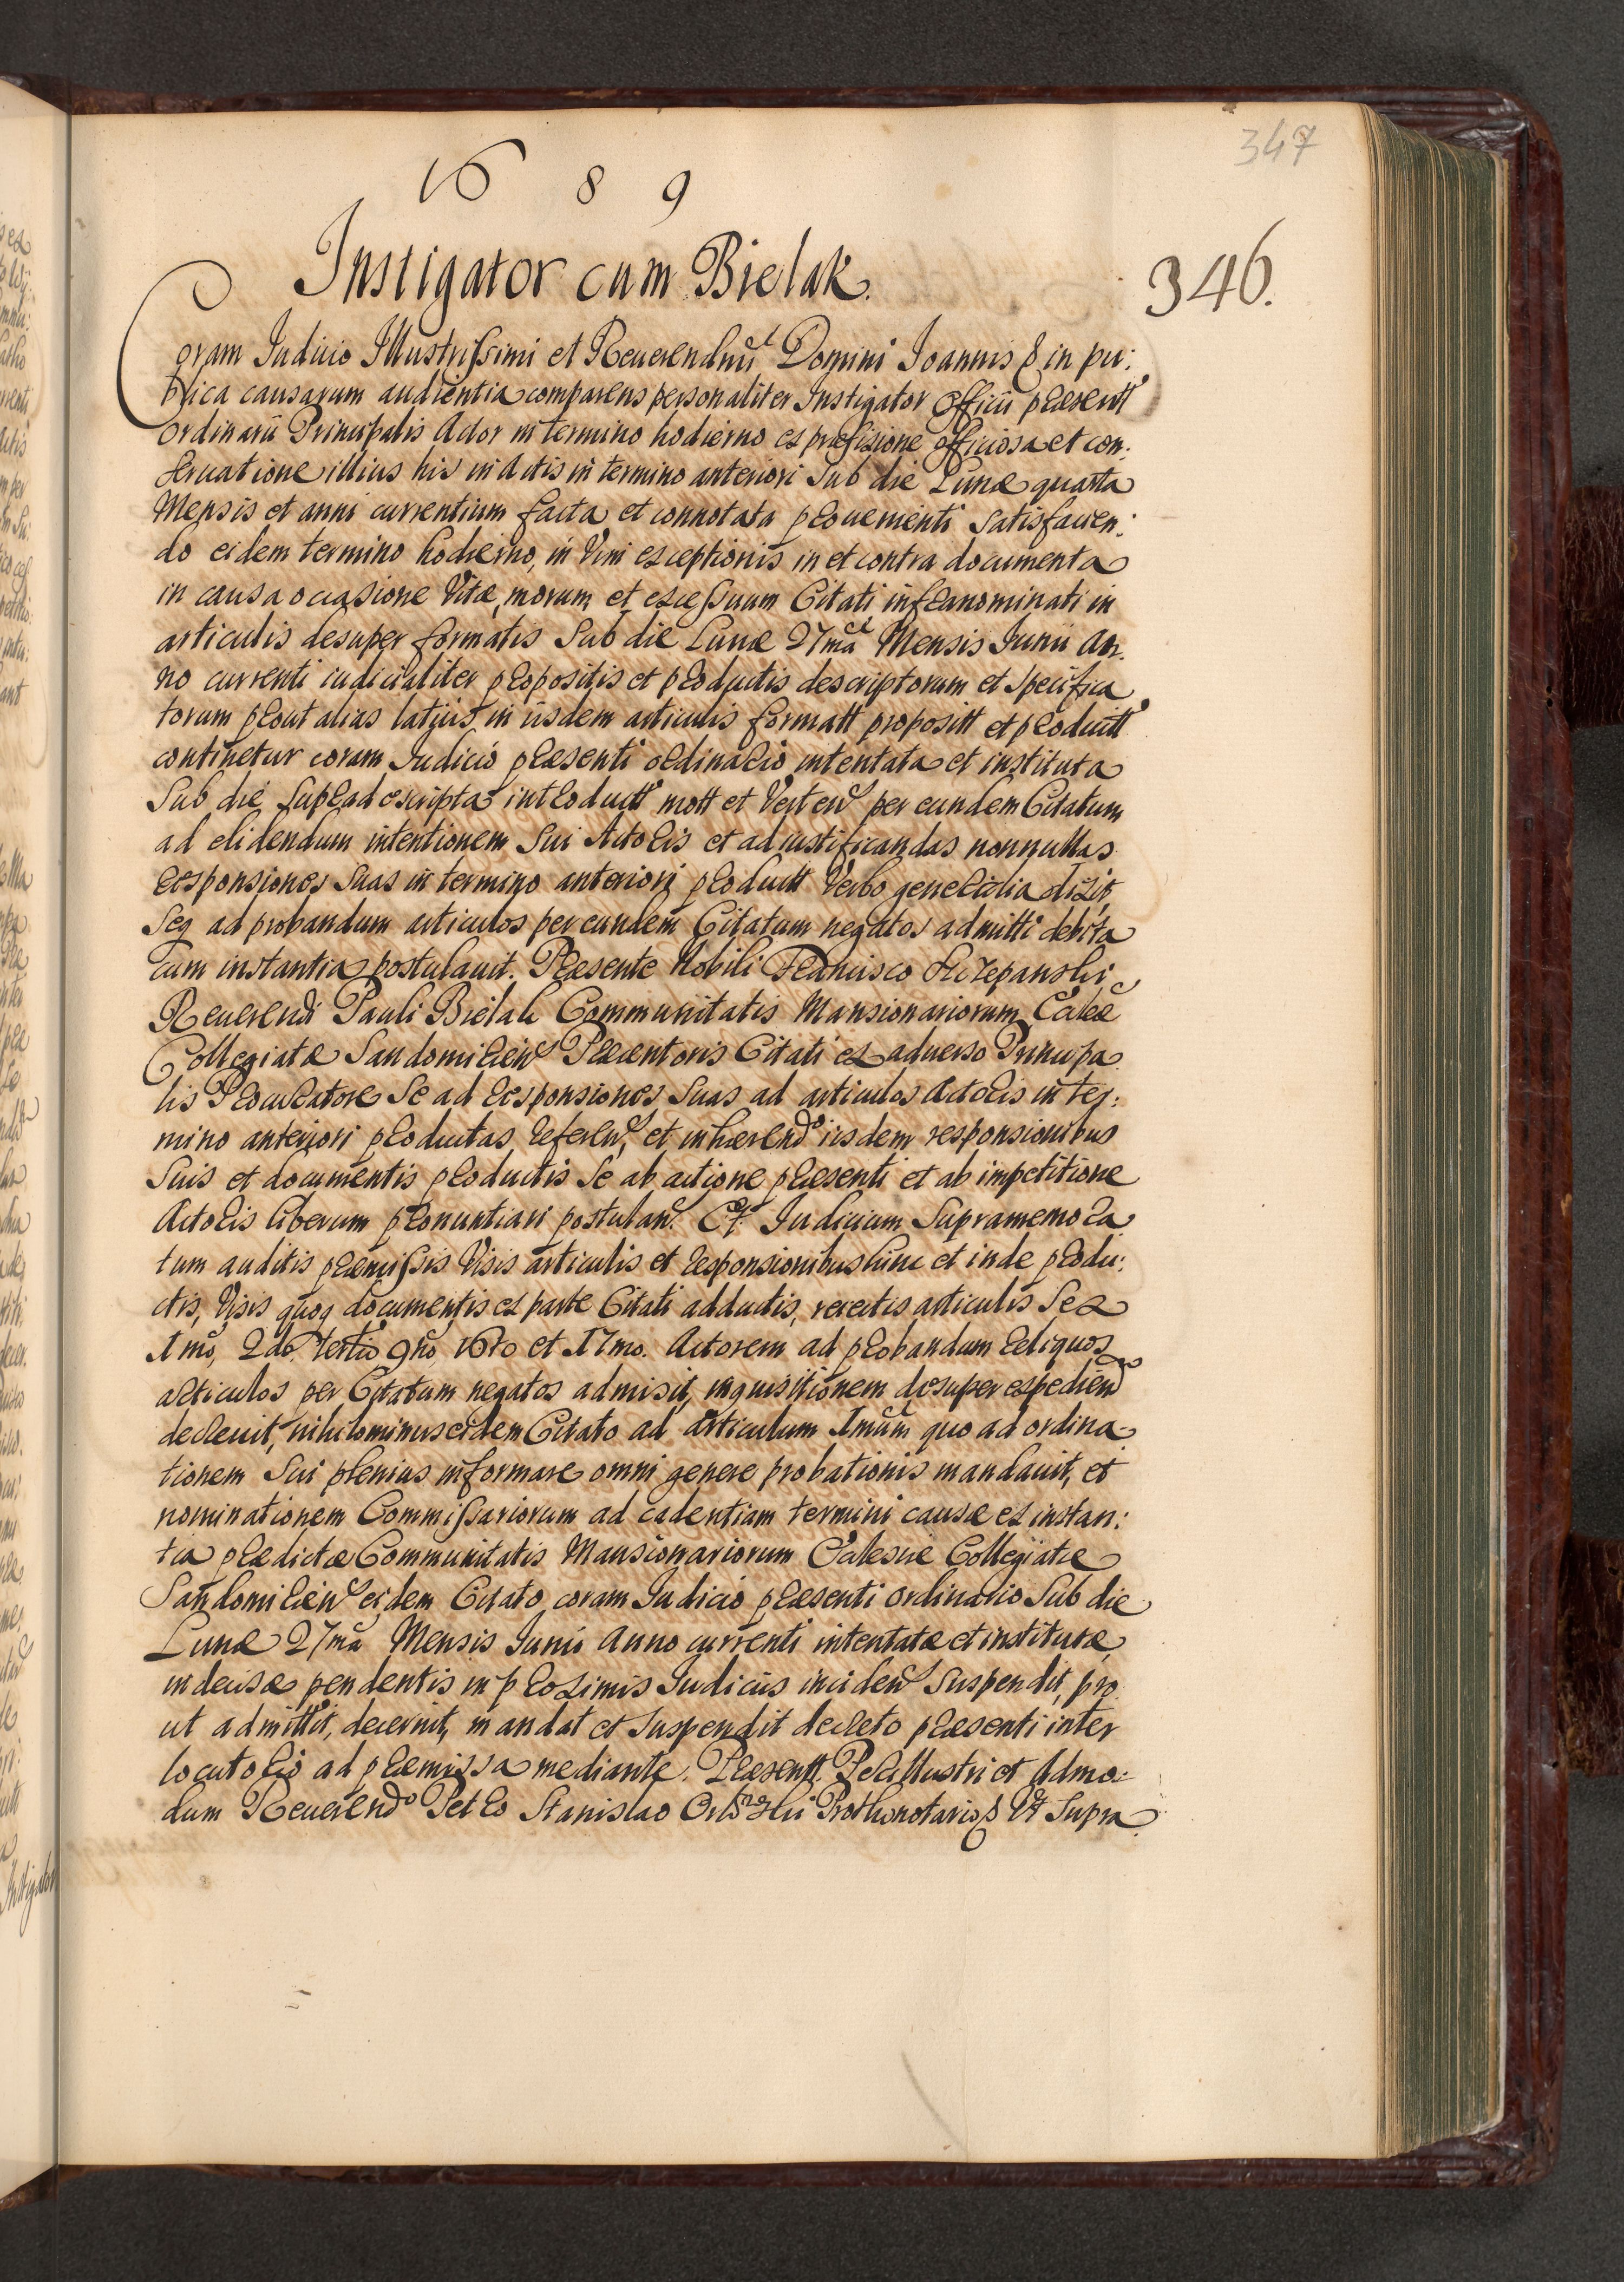 347
16 8 9
Instigator cum Bielak.
346.
Coram Iudicio Illustrissimi et Reuerendmi Domini Ioannis & in pu:
blica causarum audientia comparens personaliter Instigator Officii praesentt
ordinarii Principalis Actor in termino hodierno ex praefixione officiosa et con:
seruatione illius his in Actis in termino anteriori sub die Lunae quarta
Mensis et anni currentium facta et connotata prouenienti satisfacien:
do eidem termino hodierno, in Vim exceptionis in et contra documenta
in causa occasione Vitae, morum, et excessuum Citati infranominati in
articulis desuper formatis sub die Lunae 27ma Mensis Iunii An:
no currenti iudicialiter propositis et productis descriptorum et specifica
torum prout alias latius in iisdem articulis formatt propositt et productt
continetur coram Iudicio praesenti ordinario intentata et instituta
Sub die supradescripta introductt mott et Verten per eundem Citatum
ad elidendum intentionem sui Actoris et ad iustificandas nonnullas
responsiones suas in termino anteriori productt Verbo generalia dixit,
seq ad probandum articulos per eundem Citatum negatos admitti debita
cum instantia postulauit. Praesente Nobili Francisco Sczepanski
Reuerendi Pauli Bielak Communitatis Mansionariorum Ecclae
Collegiatae Sandomirien Praecentoris Citati ex aduerso Principa
lis Procuratore se ad responsiones suas ad articulos Actoris in ter:
mino anteriori productas referen, et inhaerendo iisdem responsionibus
suis et documentis productis se ab actione praesenti et ab impetitione
Actoris liberum pronuntiari postulan. Et Iudicium supramemora
tum auditis praemissis Visis articulis et responsionibus hinc et inde produ:
ctis, Visis quoq documentis ex parte Citati adductis, reiectis articulis sex
1mo, 2do tertio 9no 16to et 17mo. Actorem ad probandum reliquos
articulos per Citatum negatos admisit, inquisitionem desuper expediend
decreuit, nihilominus eidem Citato ad articulum 1mum quo ad ordina
tionem sui plenius informare omni genere probationis mandauit, et
nominationem Commissariorum ad cadentiam termini causae ex instan:
tia praedictae Communitatis Mansionariorum Ecclesiae Collegiatae
Sandomirien eidem Citato coram Iudicio praesenti ordinario Sub die
Lunae 27ma Mensis Iunii Anno currenti intentatae et institutae,
indecisae pendentis in proximis Iudiciis inciden suspendit, pro
ut admittit, decernit, mandat et suspendit decreto praesenti inter
locutorio ad praemissa mediante. Praesentt Perillustri et Admo:
dum Reuerendo Petro Stanislao Prothonotario & Vt Supra